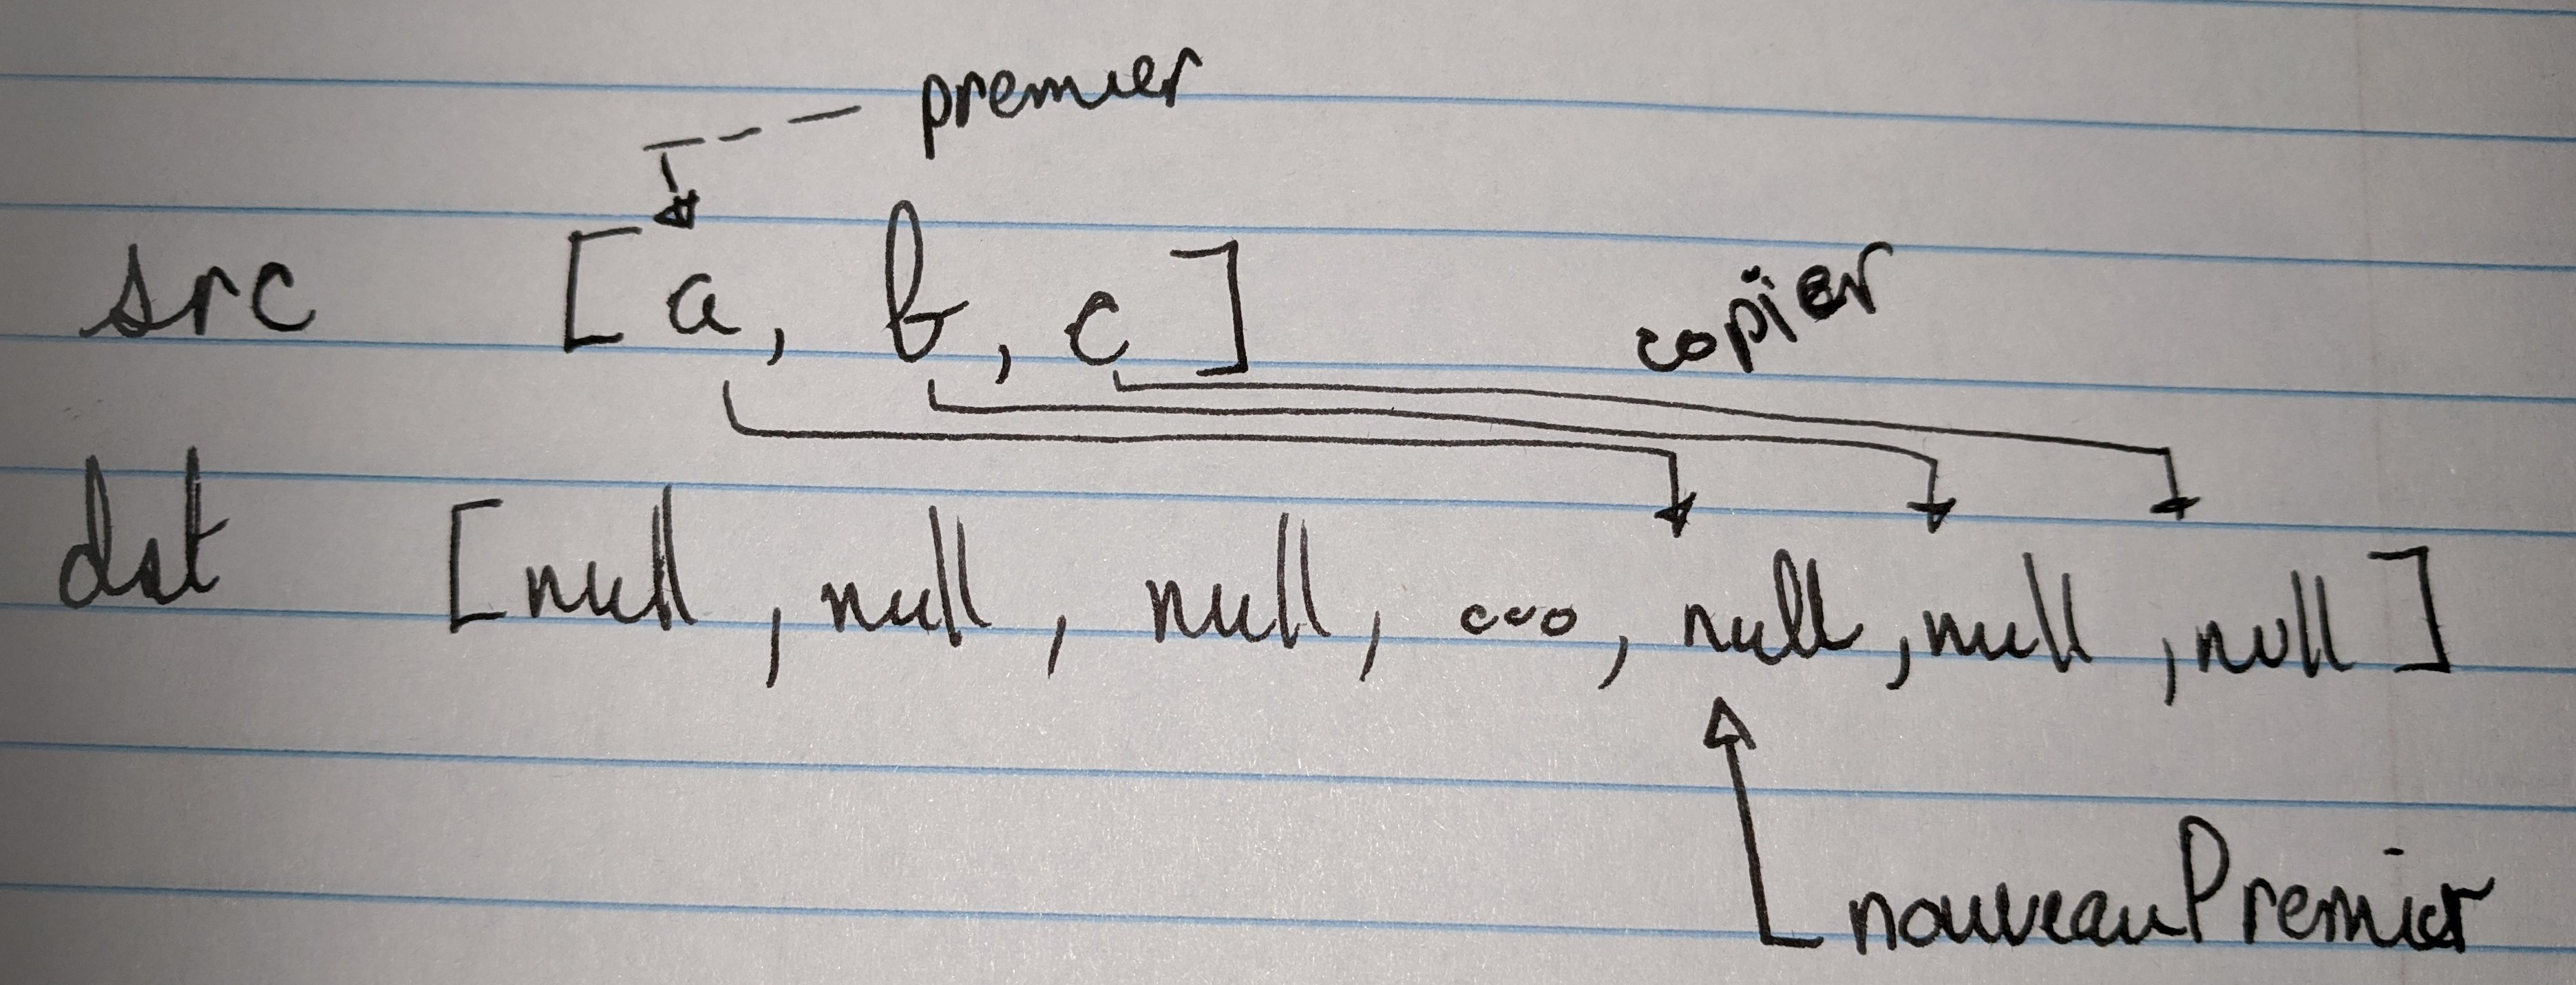 premier
src [a, b, c]
copier
dst [null, null, null, ..., null, null, null]
nouveauPremier